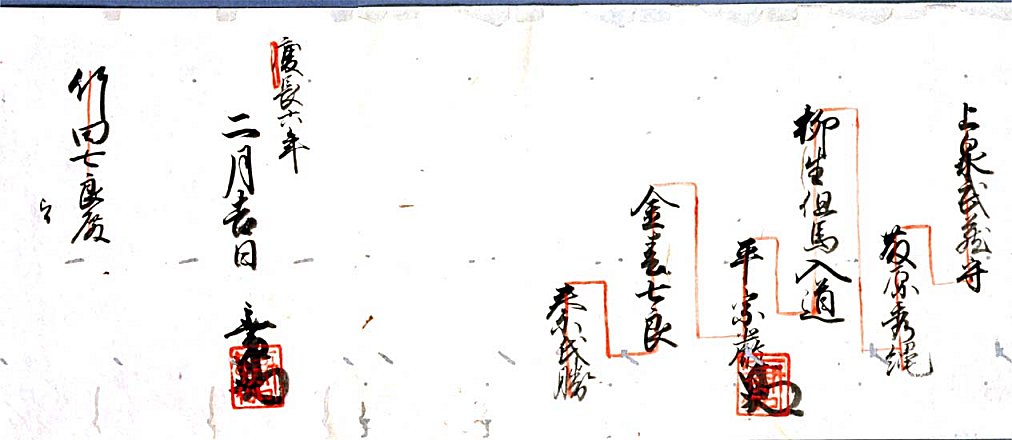 上泉武蔵守
藤原秀綱
柳生但馬入道
平宗厳
金春七良
秦氏勝
慶長六年
二月吉日
竹田七良殿